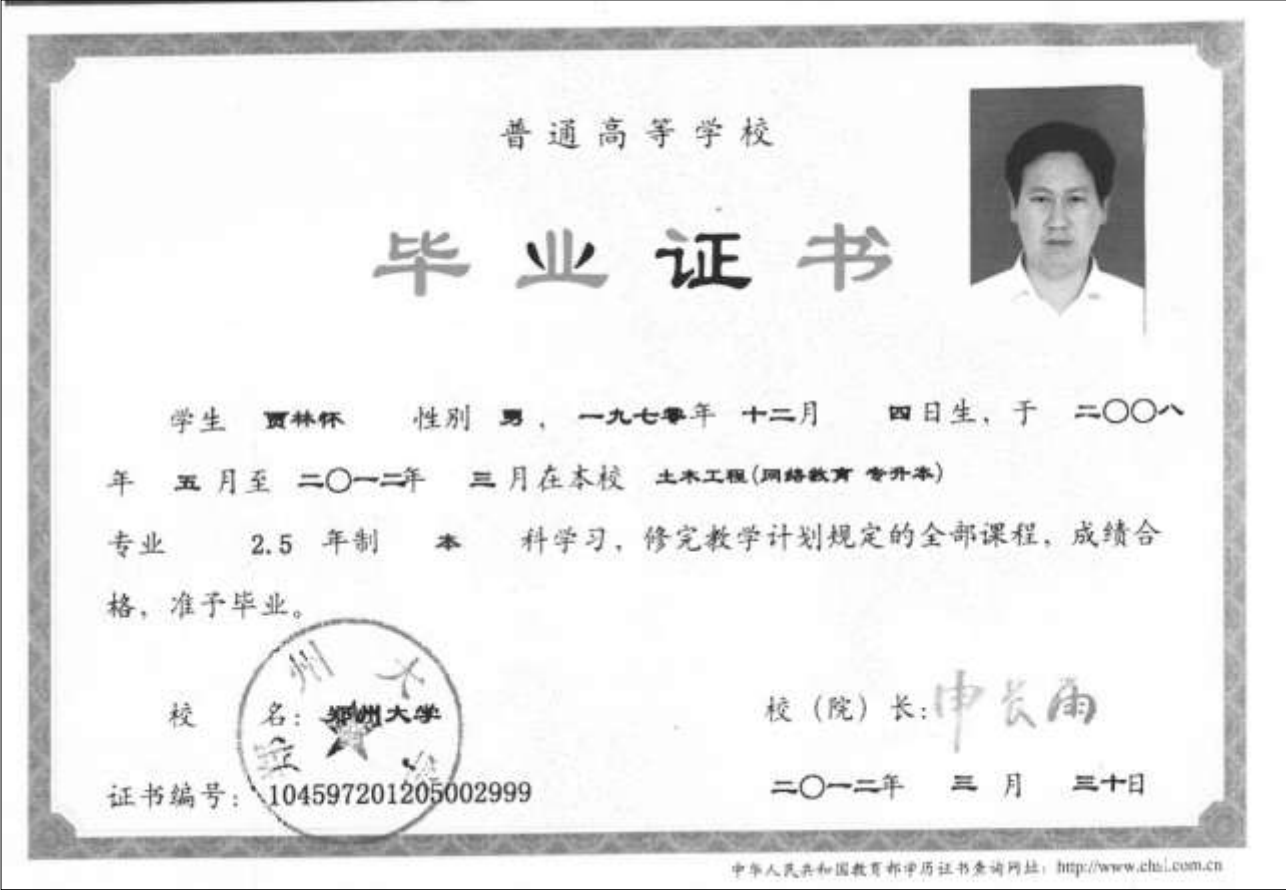 普通高等学校
毕业证书
学生 贾林怀 性别 男，一九七零年 十二月 四日生，于 二〇〇八
年 五月至 二〇一二年 三月在本校 土木工程(网络教育 专升本)
专业 2.5 年制 本 科学习，修完教学计划规定的全部课程，成绩合
格，准予毕业。
校 名：郑州大学
校（院）长：申长雨
证书编号：104597201205002999
二〇一二年 三月 三十日
中华人民共和国教育部学历证书查询网址：http://www.chsi.com.cn